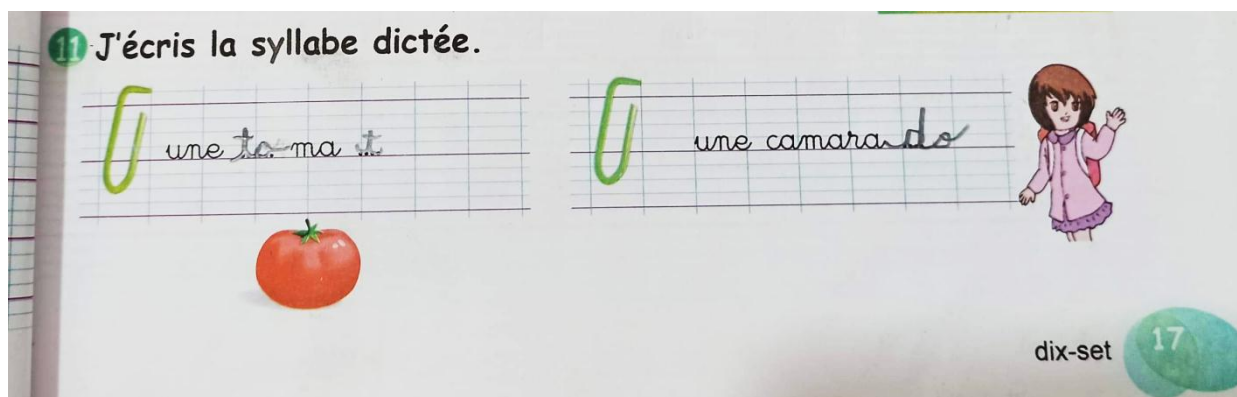 11 J'écris la syllabe dictée.
une to ma t
une camara do
dix-set 17